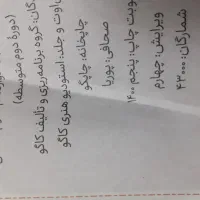 (دوره دوم متوسطه)
گان: گروه برنامه‌ریزی و تالیف گاگو
اوت و جلد: استودیو هنری گاگو
چاپخانه: چاپگو
صحافی: پوریا
نوبت چاپ: پنجم ۱۴۰۰
ویرایش: چهارم
شمارگان: ۴۳۰۰۰